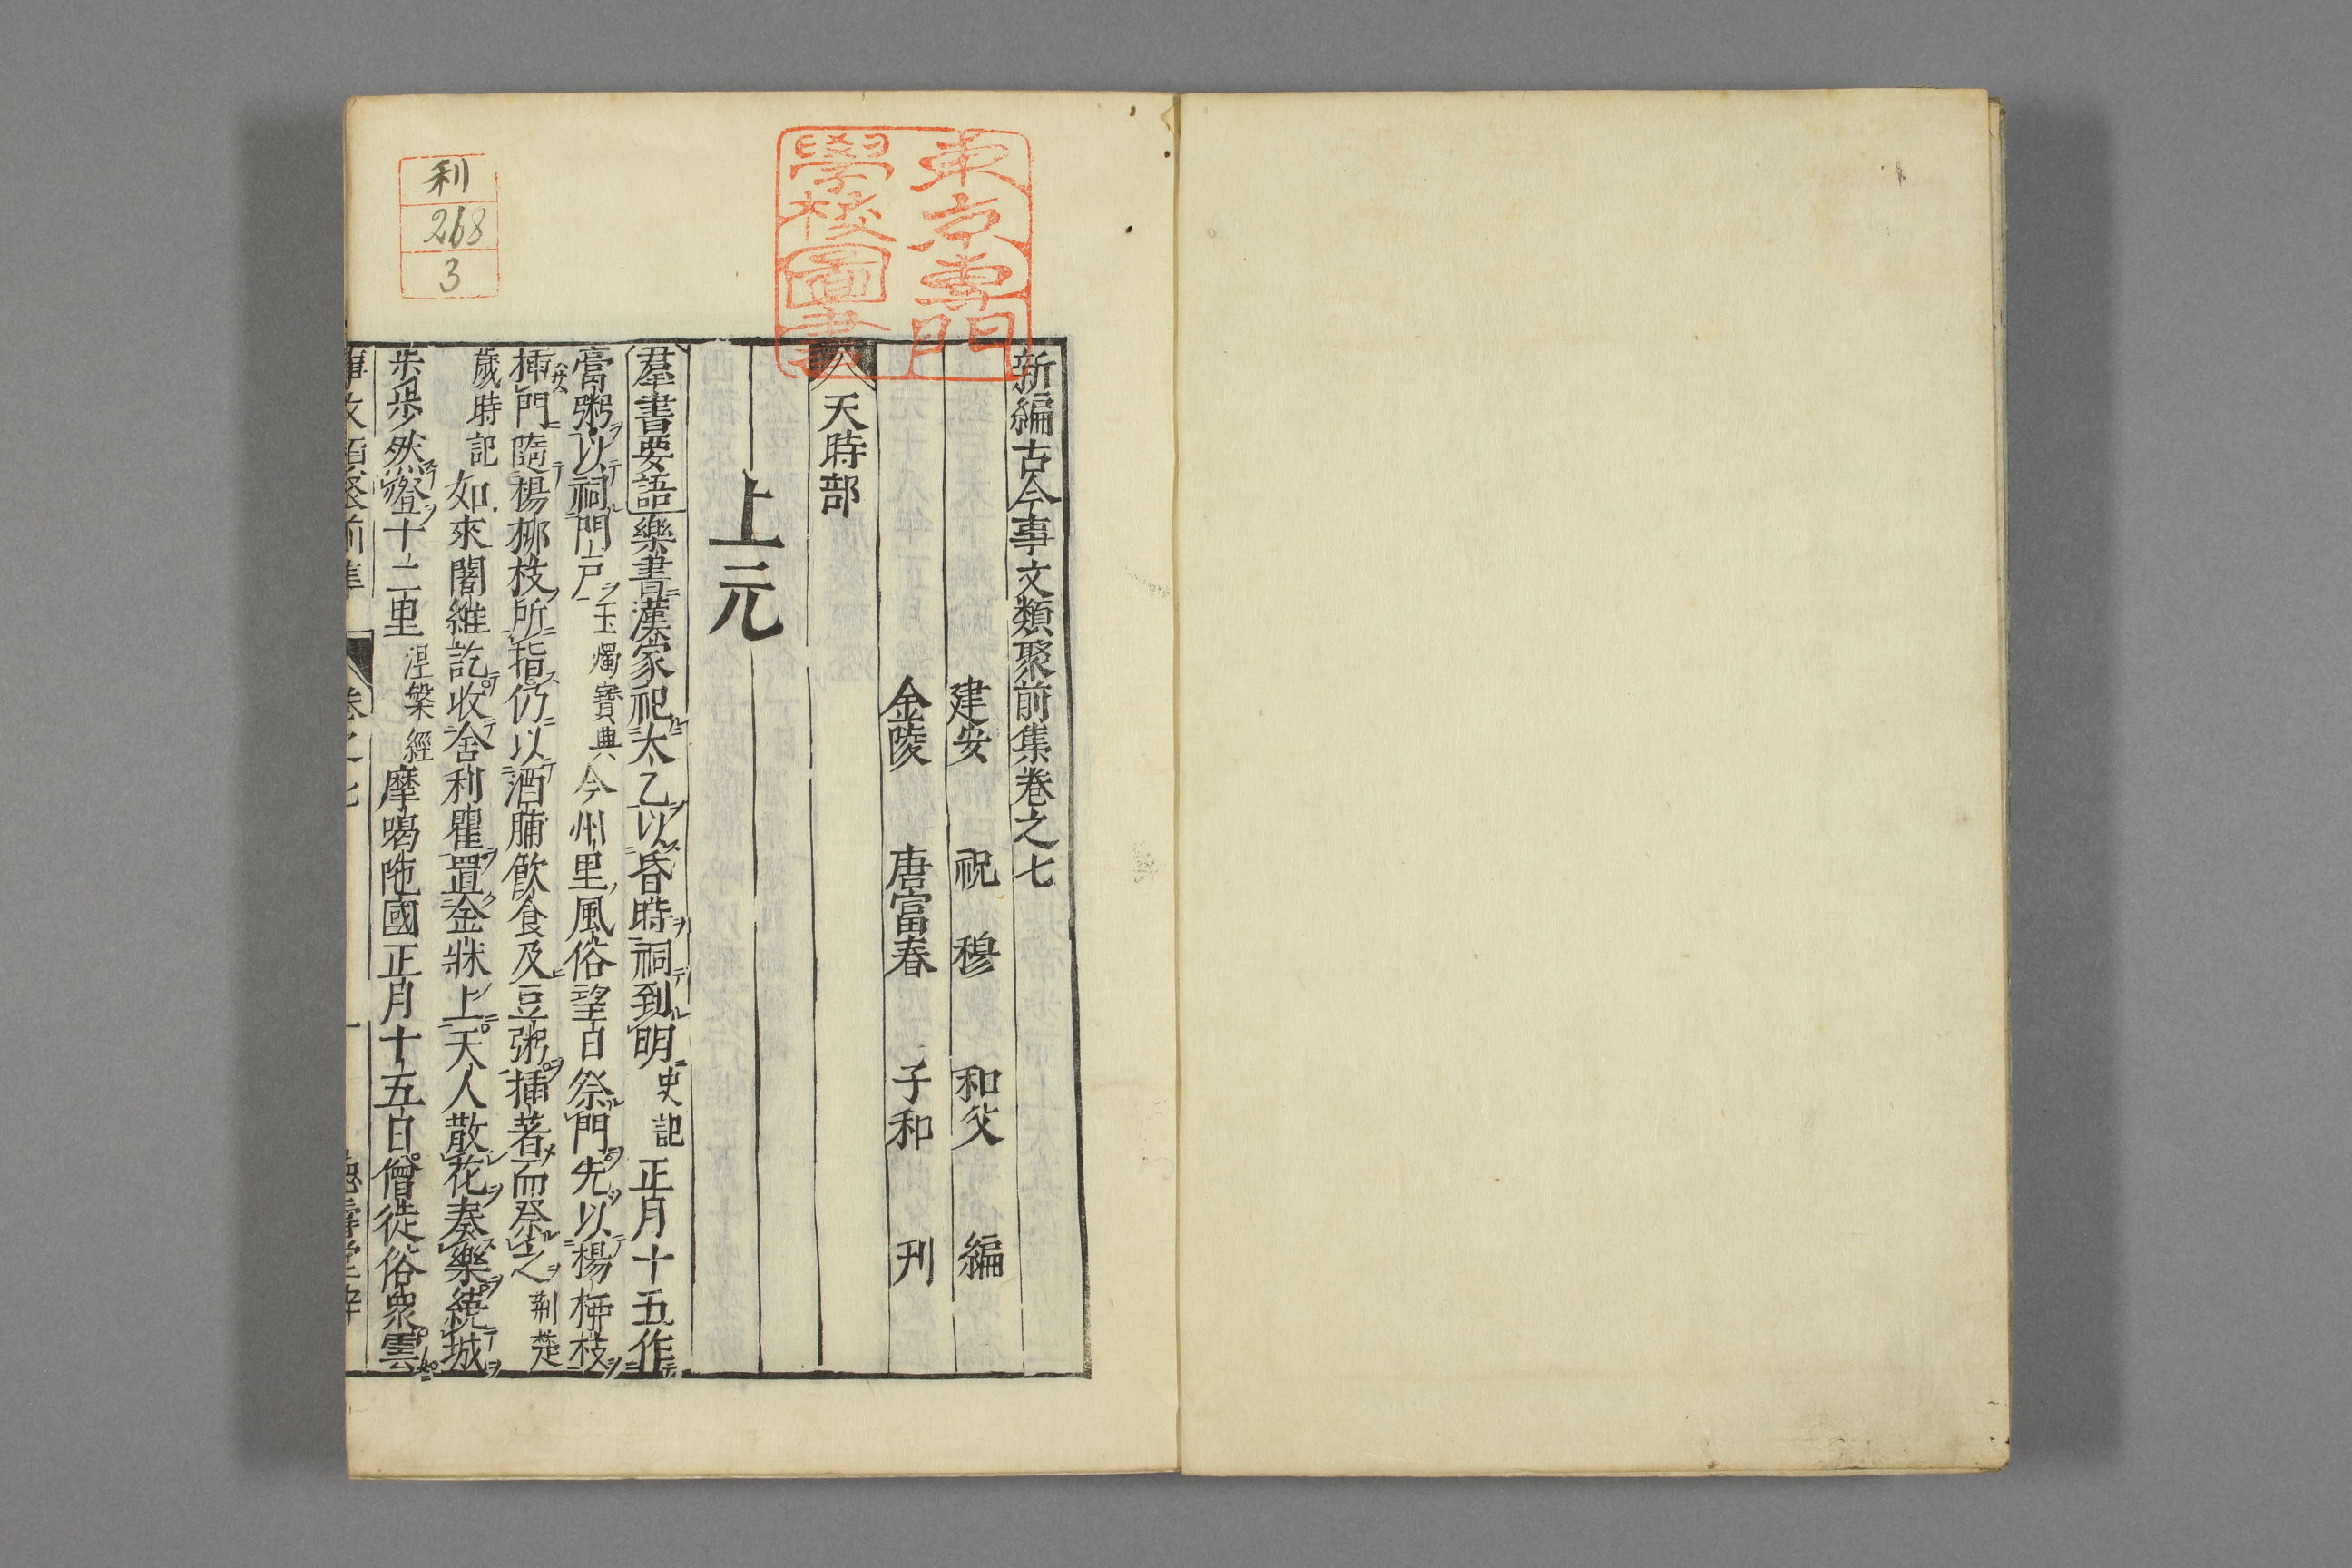 東京專門
學校圖書
利
268
3
新編古今事文類聚前集卷之七
建安 祝穆 和父 編
金陵 唐富春 子和 刊
天時部
上元
羣書要語樂書漢家祀太乙以昏時祠到明史記正月十五作
膏粥以祠門戶玉燭寶典今州里風俗望日祭門先以楊柳枝
揷門隨楊柳枝所指仍以酒脯飲食及豆粥揷著而祭之荆楚
歲時記如來闍維訖收舍利罌置金牀上天人散花奏樂繞城
步步然燈十二里涅槃經摩喝陁國正月十五日僧徒俗衆雲
事文類聚前集 卷之七 一